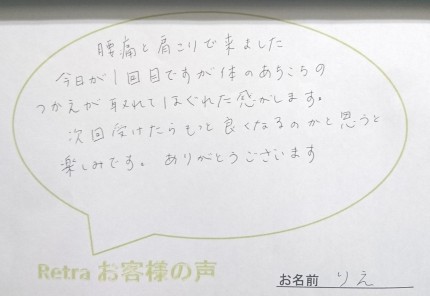 腰痛と肩こりで来ました
今日が1回目ですが体のあちこちの
つかえが取れてほぐれた感がします。
次回受けたらもっと良くなるのかと思うと
楽しみです。ありがとうございます
Retra お客様の声
お名前 りえ